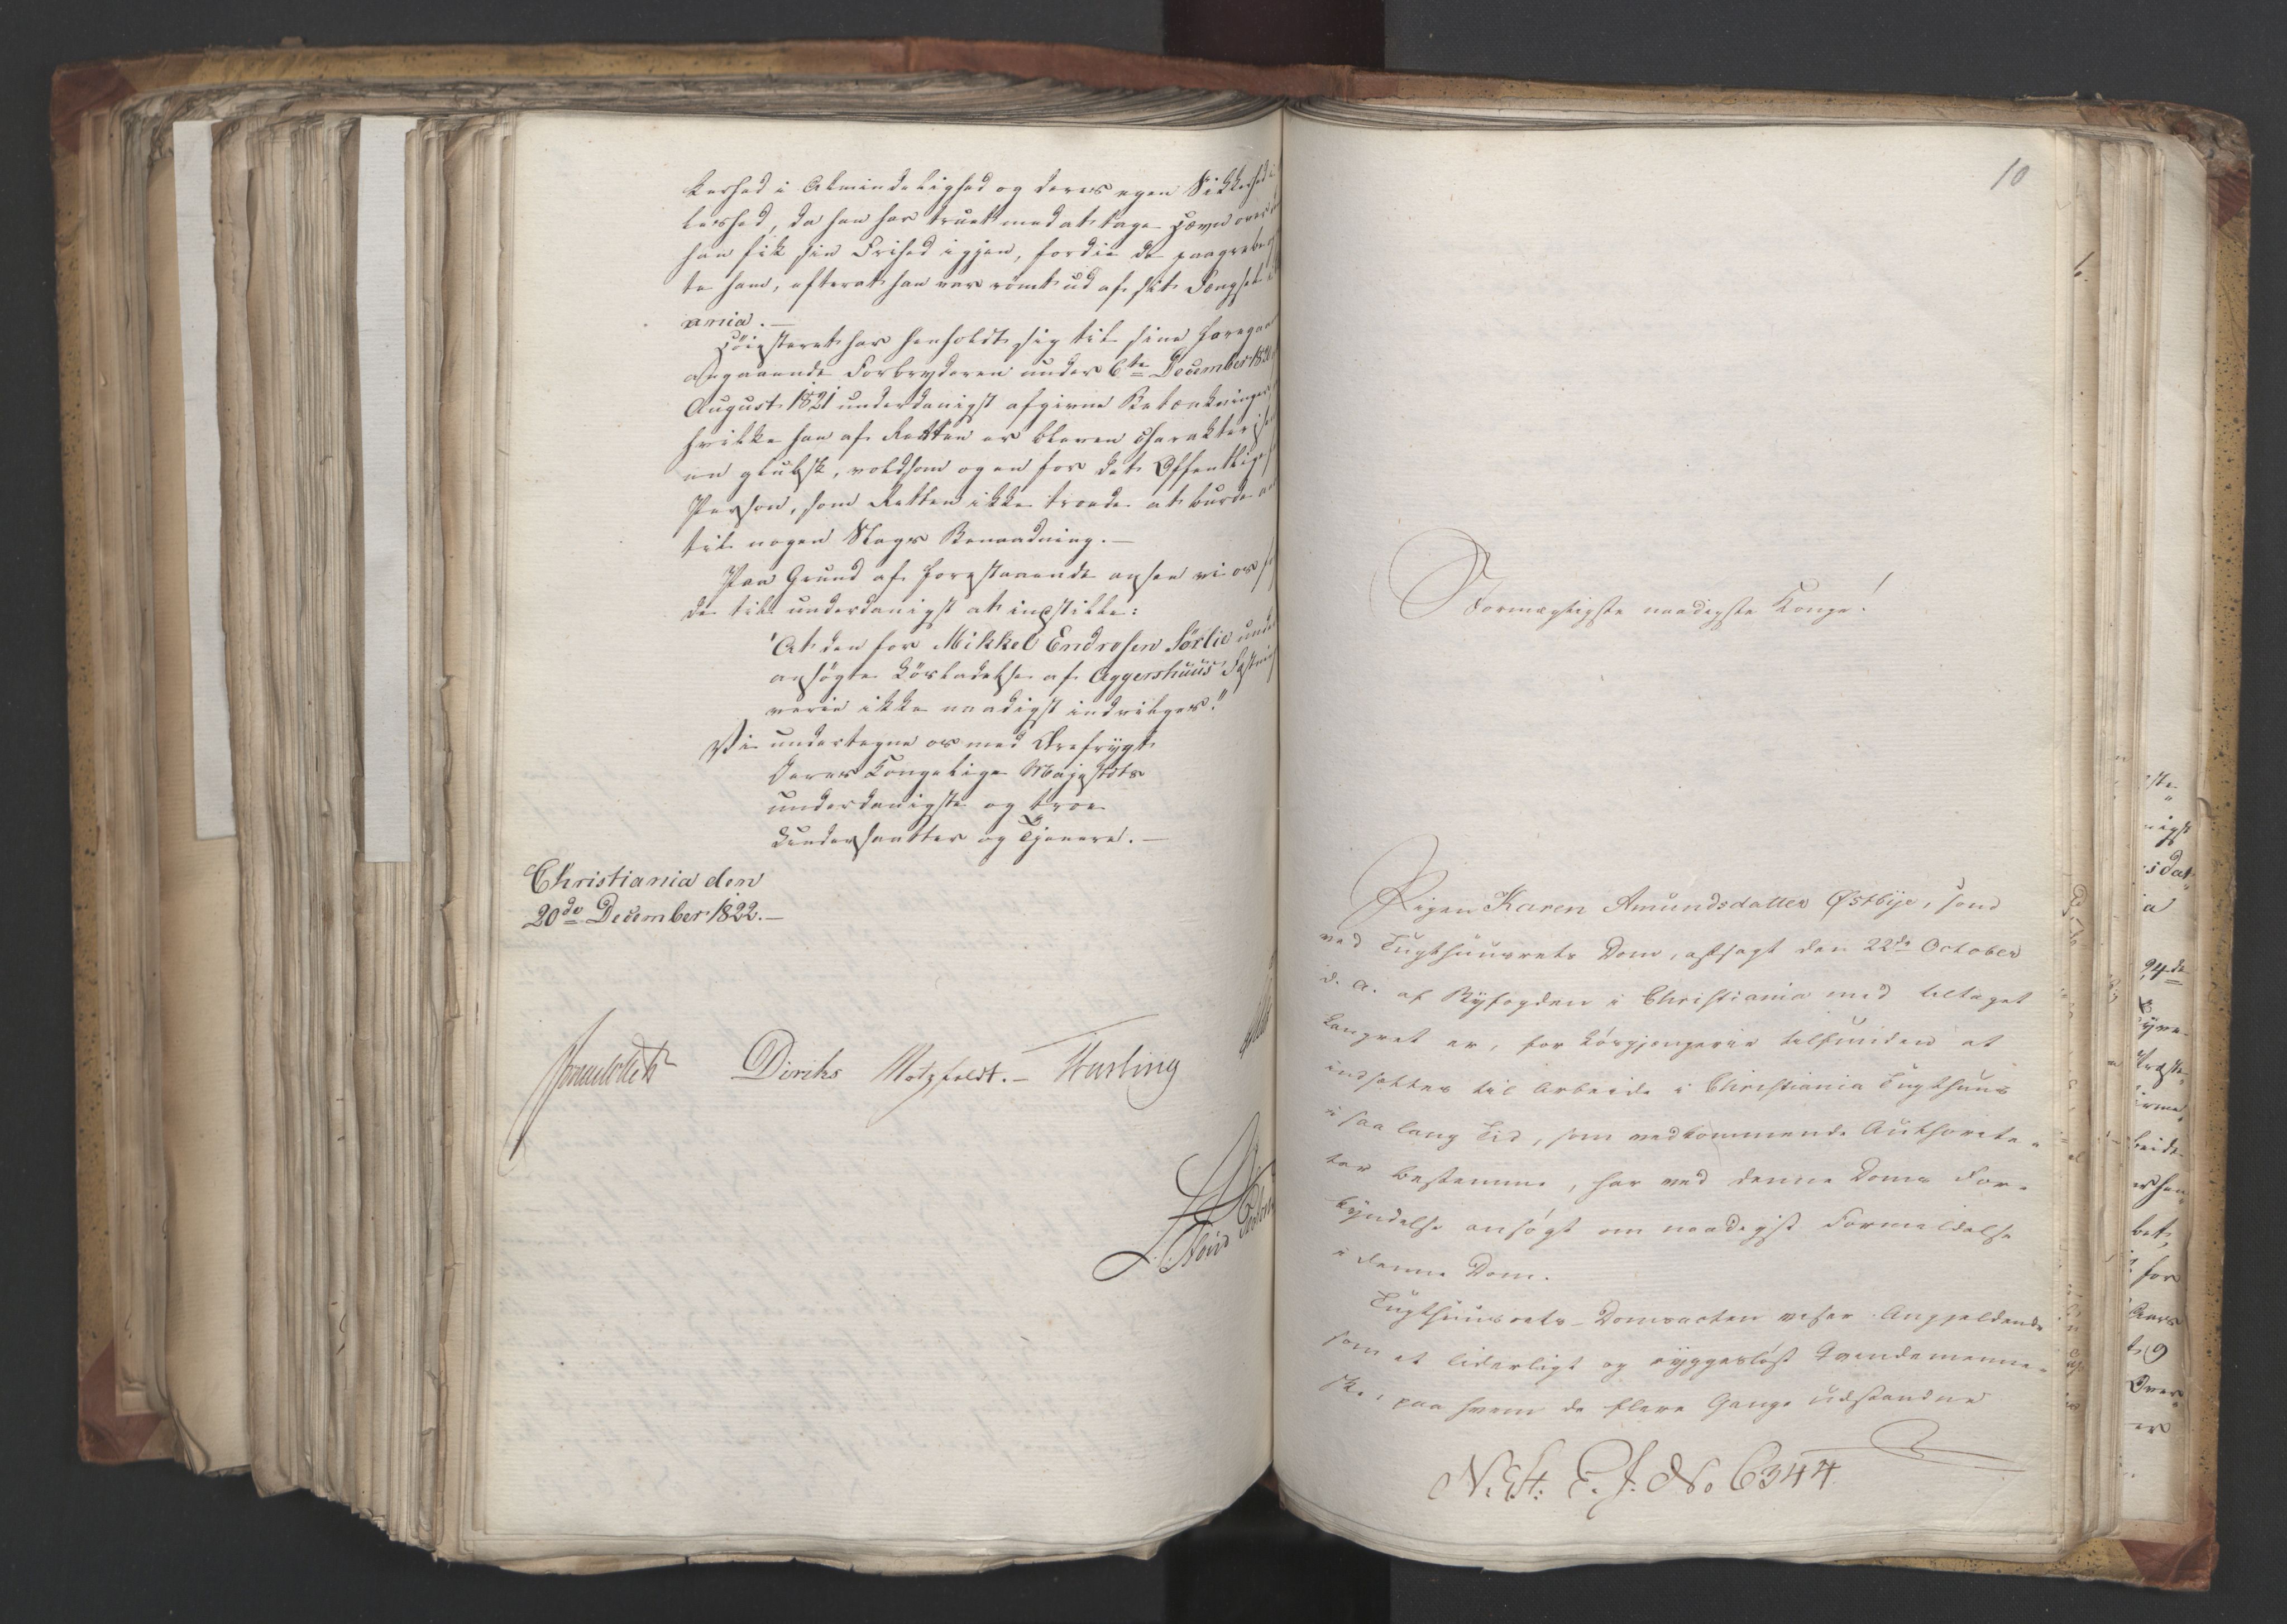 kerhed i Almindelighed og deres egen Sikkerhed i
leshed, da han har truet med at tage Hævn over
han fik sin Frihed igjen, fordie de paagrebe
te ham, efterat han var rømt ud af sit Fængsel
ania.—
Höiesteret har henholdt sig til sine foregaa
angaaende Forbryderen under 6te December 1820
August 1821 underdanigst afgivne Betænkninger
hvilke han af Retten er bleven charakteris
en glubsk, voldsom og en for det Offentlige
Person, som Retten ikke troede at burde
til nogen Slags Benaadning.—
Paa Grund af forestaaende ansee vi os
de til underdanigst at indstille:
"At den for Mikkel Endresen Sørlie unde
ansögte Lösladelse af Aggershuus Fæstning
verie ikke naadigst indvilges."
Vi undertegne os med Ærefrygt
Deres Kongelige Majestæts
underdanigste og troe
Undersaatter og Tjenere.—
Christiania den
20de December 1822.—
Diriks Motzfeldt.—
10
Stormægtigste naadigste Konge!
Pigen Karen Amundsdatter Østbye, som
ved Tugthuusrets Dom, afsagt den 22de October
d. A. af Byfogden i Christiania med tiltaget
Laugret er, for Lösgjængerie tilfunden at
indsættes til Arbeide i Christiania Tugthuus
i saa lang Tid, som vedkommende Authorite-
ter bestemme, har ved denne Doms For-
kyndelse ansögt om naadigst Formildelse
i denne Dom.
Tugthuusrets-Domsacten viser Angjeldende
som et liderligt og ryggeslöst Qvindemenne-
ske, paa hvem de flere Gange udstandne
N. St. E. J. No 6344